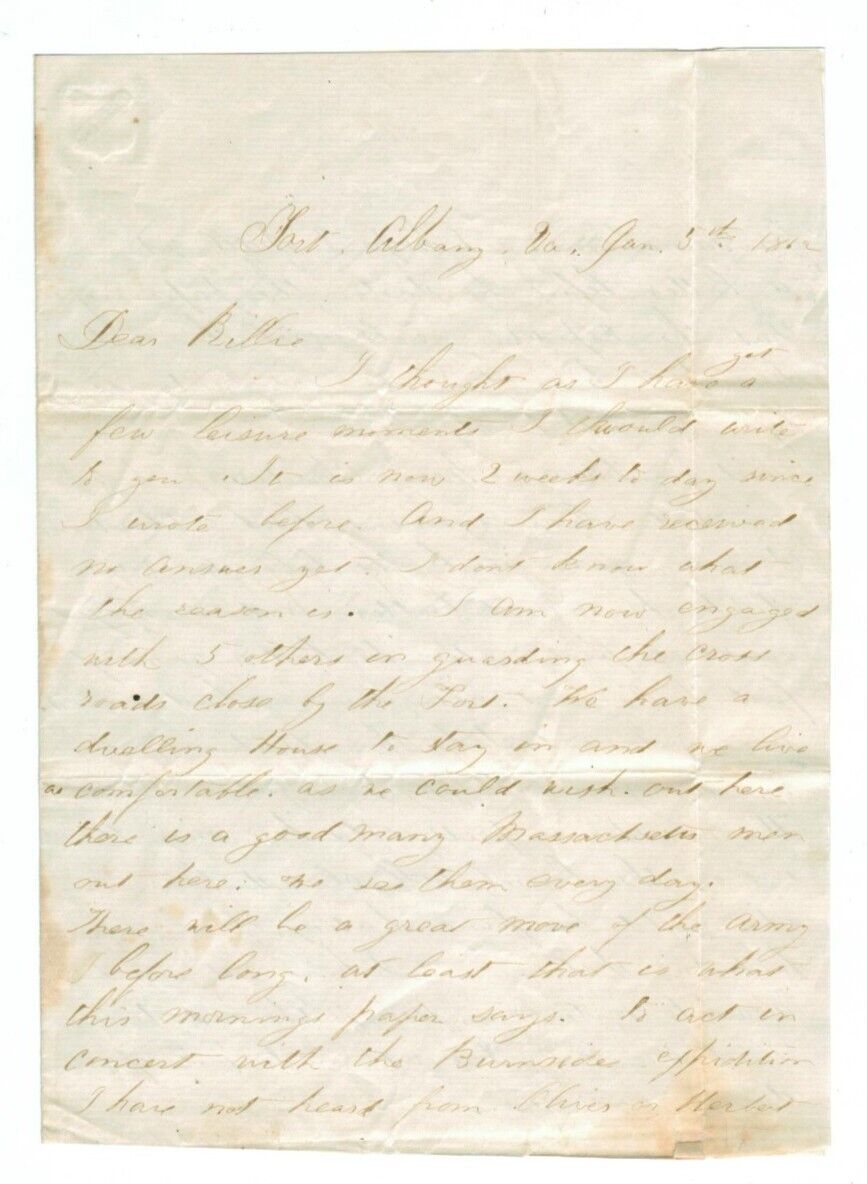 Fort. Albany. Va. Jan. 5th 1862
Dear Billie
I thought as I have got a
few leisure moments I would write
to you. It is now 2 weeks to day since
I wrote before. And I have received
no answer yet. I dont know what
the reason is. I am now engaged
with 5 others in guarding the cross
roads close by the Fort. We have a
dwelling House to stay in and we live
as comfortable. as we could wish. out here
there is a good many Massachusetts men
out here. we see them every day.
There will be a great move of the army
before long. at least that is what
this mornings paper says. to act in
concert with the Burnsides expidition
I have not heard from or Herbert